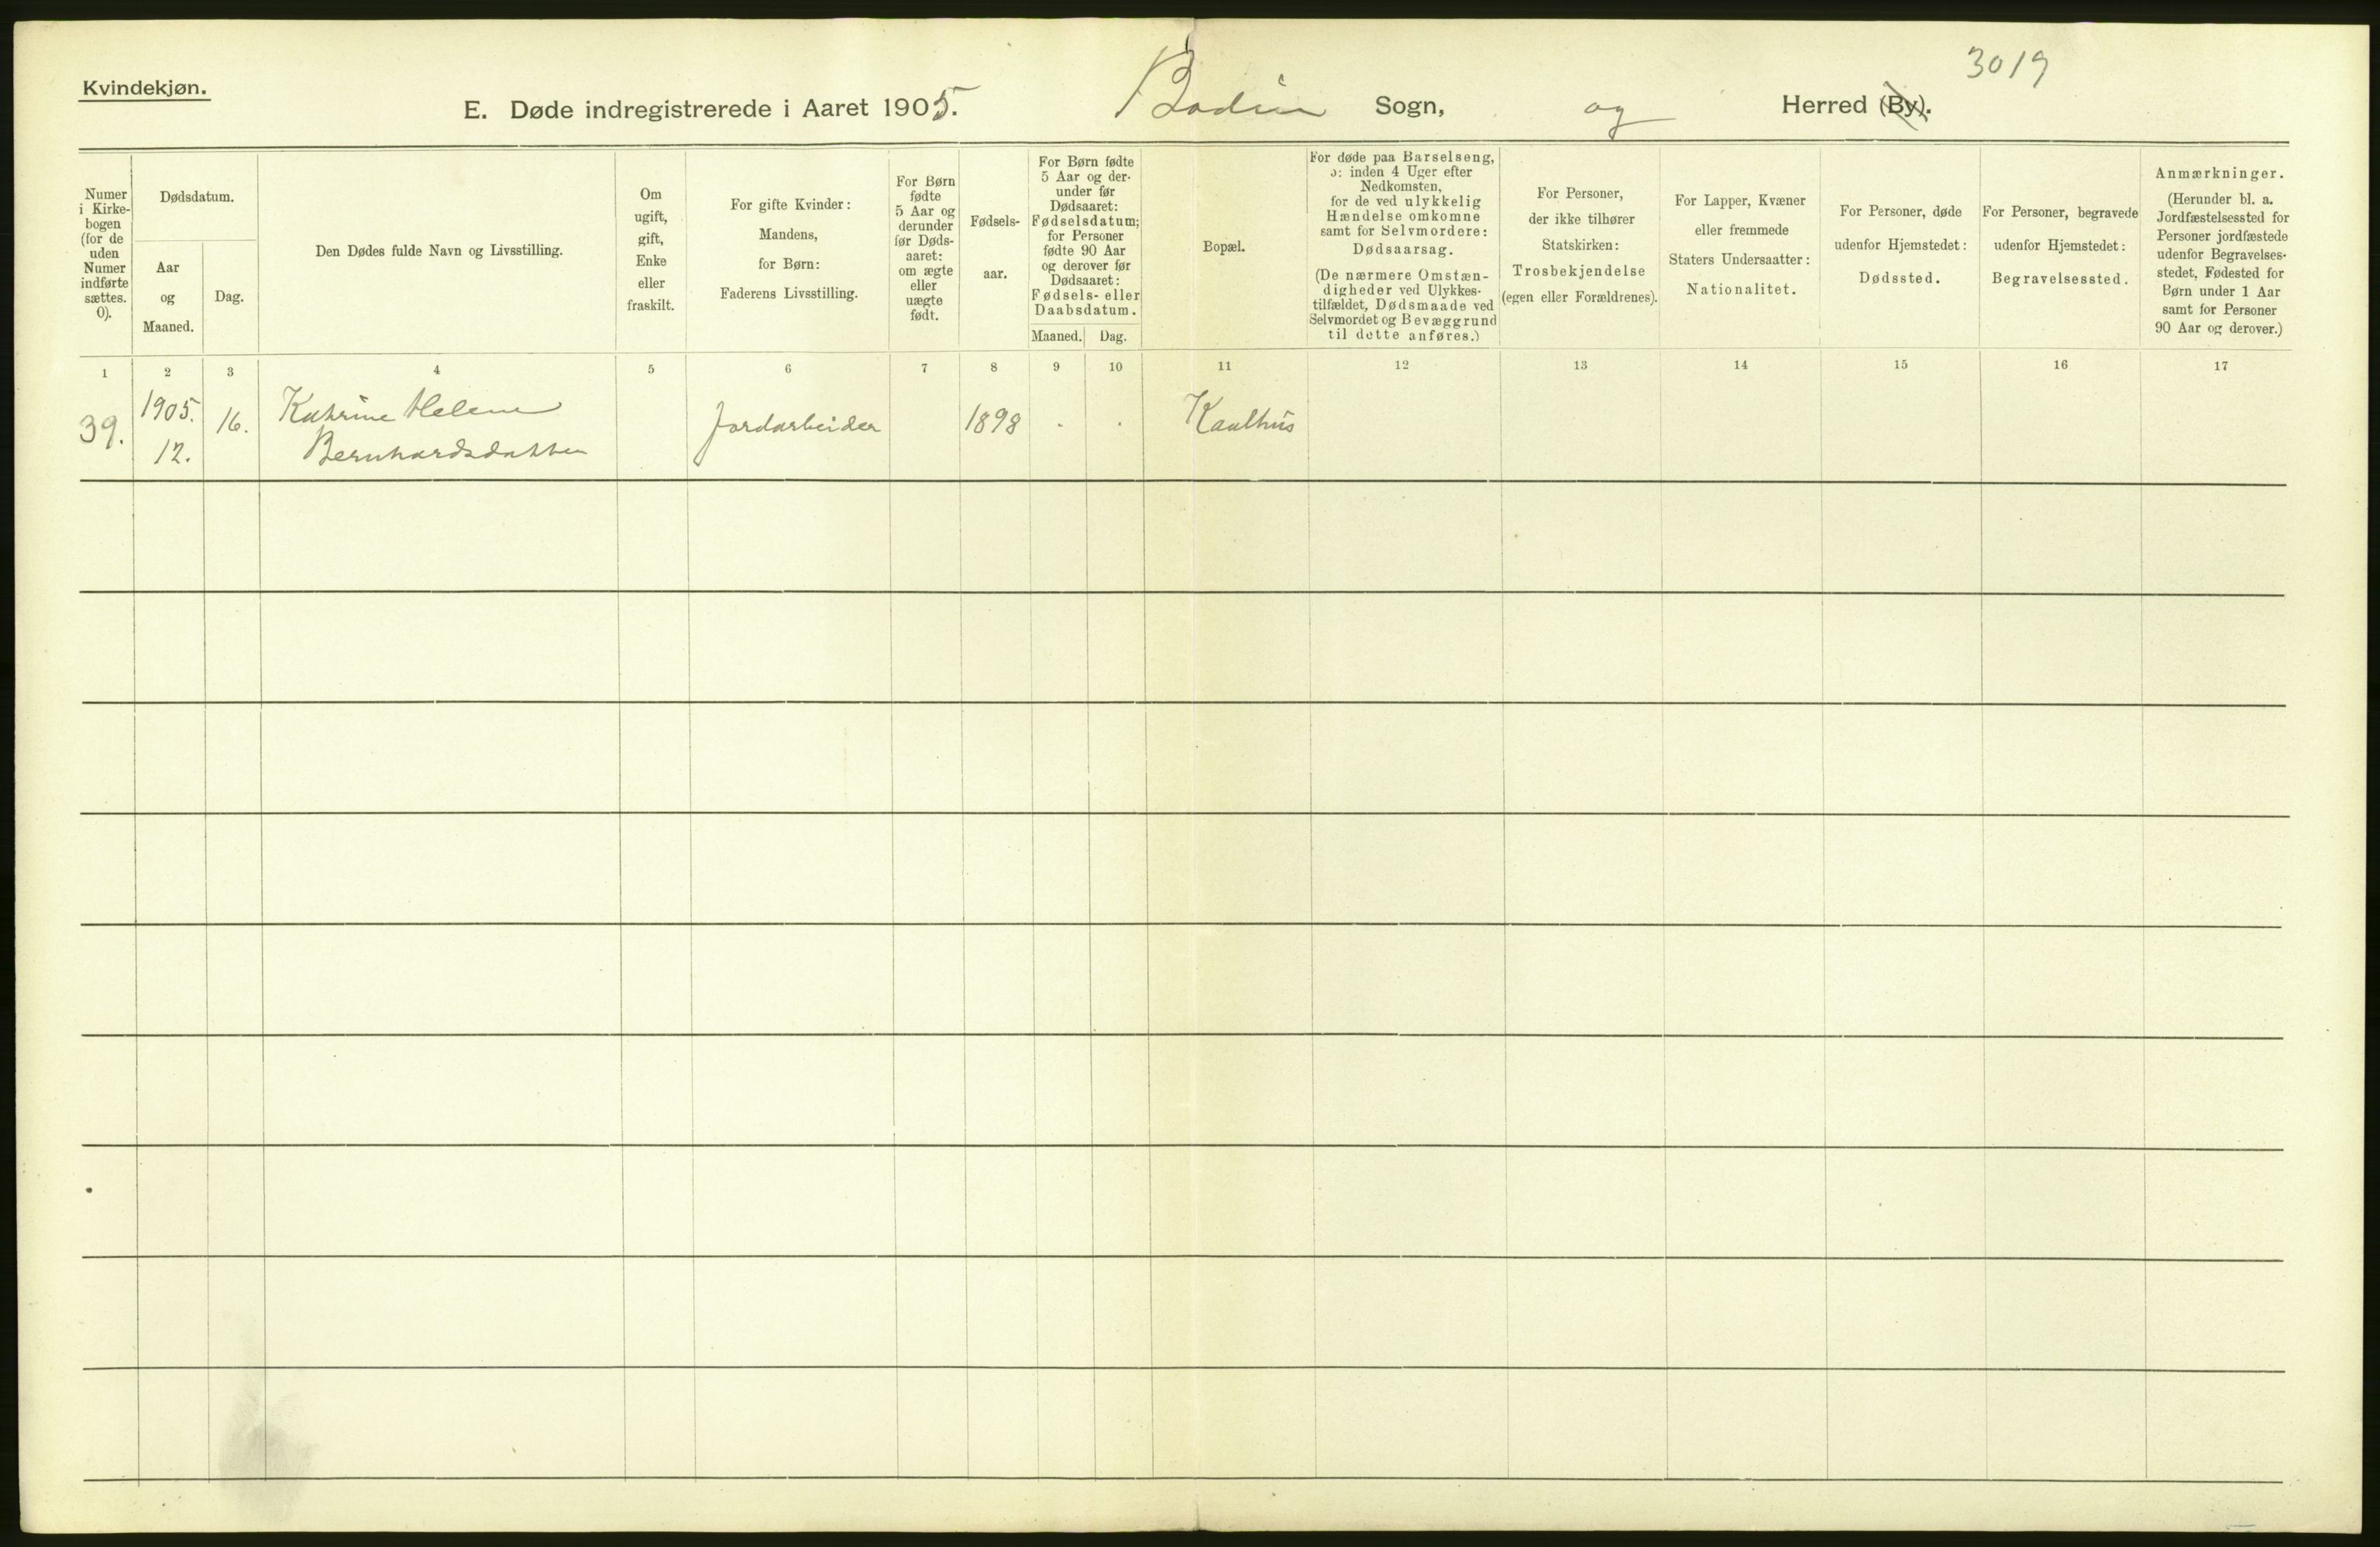 3019
Kvindekjøn.
E. Døde indregistrerede i Aaret 1905. Bodin Sogn, og Herred (By).
Numer
i Kirke-
bogen
(for de
uden
Numer
indførte
sættes.
0).
Dødsdatum.
Aar
og
Maaned.
Dag.
Den Dødes fulde Navn og Livsstilling.
Om
ugift,
gift,
Enke
eller
fraskilt.
For gifte Kvinder:
Mandens,
for Børn:
Faderens Livsstilling.
For Børn
fødte
5 Aar og
derunder
før Døds-
aaret:
om ægte
eller
uægte
født.
Fødsels-
aar.
For Børn fødte
5 Aar og der-
under før
Dødsaaret:
Fødselsdatum;
for Personer
fødte 90 Aar
og derover før
Dødsaaret:
Fødsels- eller
Daabsdatum.
Maaned. Dag.
Bopæl.
For døde paa Barselseng,
ɔ: inden 4 Uger efter
Nedkomsten,
for de ved ulykkelig
Hændelse omkomne
samt for Selvmordere:
Dødsaarsag.
(De nærmere Omstæn-
digheder ved Ulykkes-
tilfældet, Dødsmaade ved
Selvmordet og Bevæggrund
til dette anføres.)
For Personer,
der ikke tilhører
Statskirken:
Trosbekjendelse
(egen eller Forældrenes).
For Lapper, Kvæner
eller fremmede
Staters Undersaatter:
Nationalitet.
For Personer, døde
udenfor Hjemstedet:
Dødssted.
For Personer, begravede
udenfor Hjemstedet:
Begravelsessted.
Anmærkninger.
(Herunder bl. a.
Jordfæstelsessted for
Personer jordfæstede
udenfor Begravelses-
stedet, Fødested for
Børn under 1 Aar
samt for Personer
90 Aar og derover.)
1 2 3 4 5 6 7 8 9 10 11 12 13 14 15 16 17
39. 1905. 16. Katrine Helene Jordarbeider 1898 Kaalhus
12. Bernhardsdatter